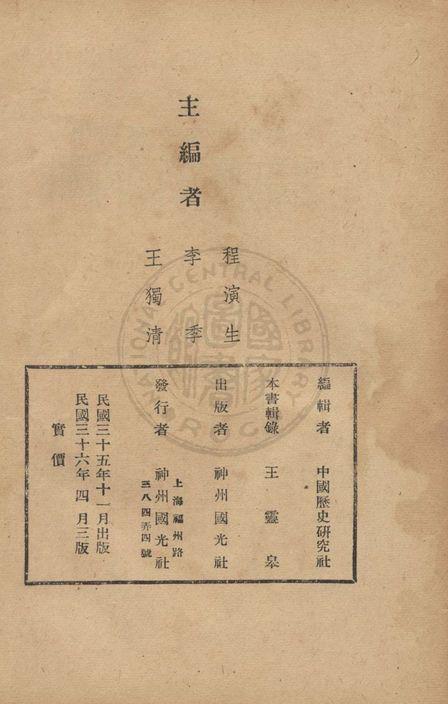 主編者
程演生
李季
王獨清
編輯者 中國歷史研究社
本書輯錄 王靈皋
出版者 神州國光社
發行者 神州國光社
上海福州路
三八四弄四號
民國三十五年十一月出版
民國三十六年四月三版
實價
NATIONAL CENTRAL LIBRARY
R.O.C.
國家圖書館